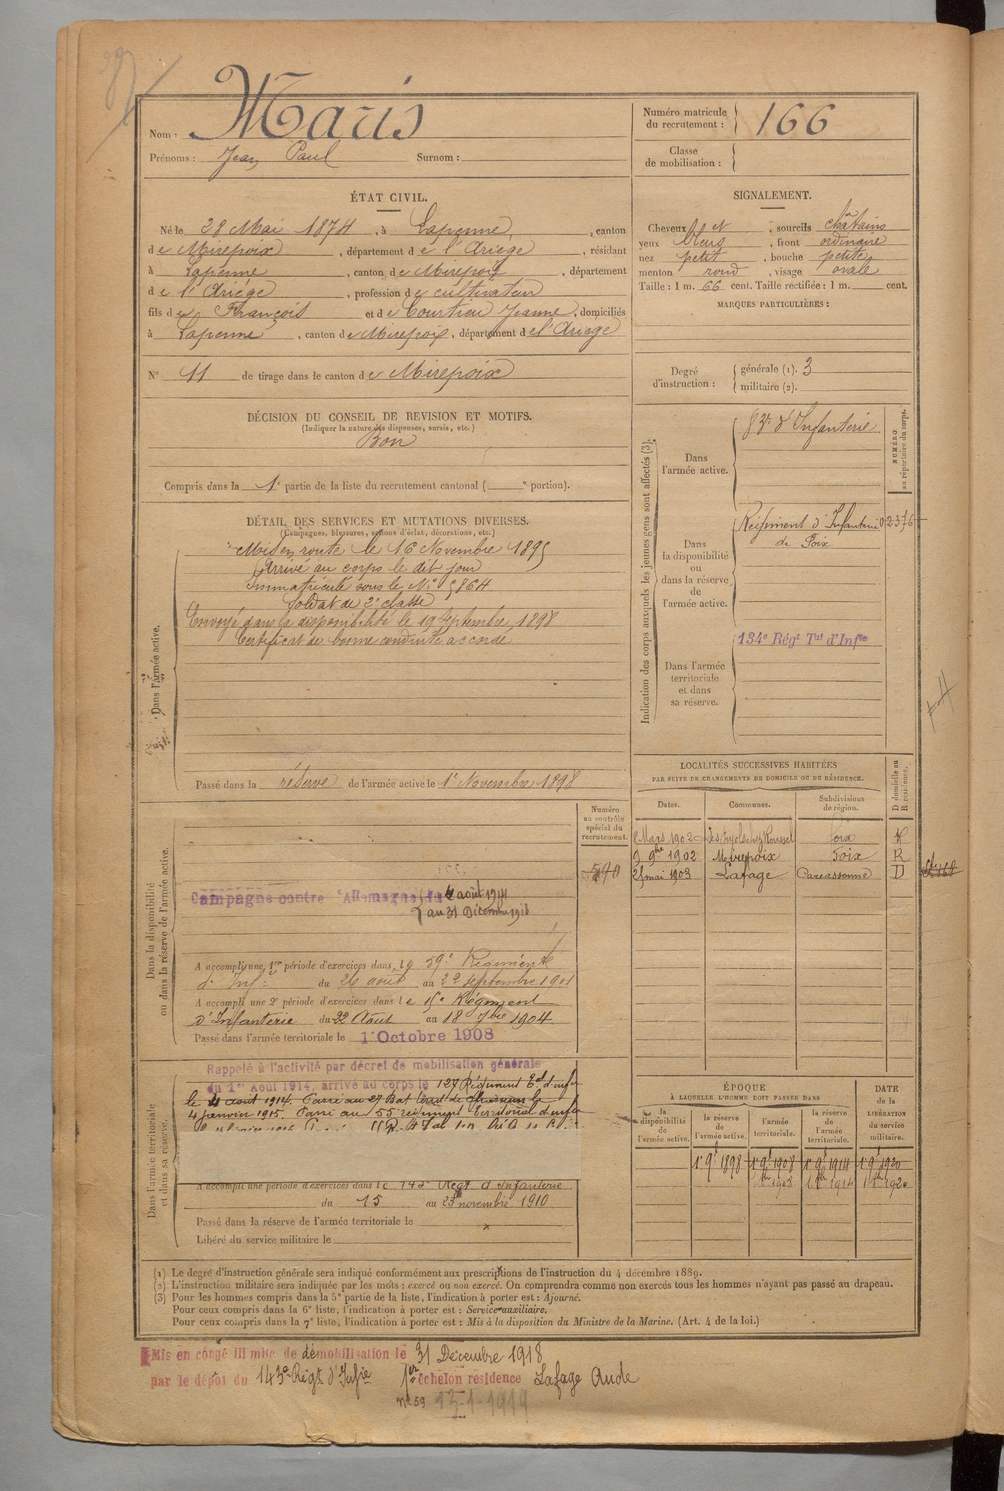 Nom : Maris
Prénoms : Jean Paul Surnom :
Numéro matricule du recrutement : 166
Classe de mobilisation :
ÉTAT CIVIL.
Né le 28 Mai 1874, à Lapenne, canton
de Mirepoix, département de l'Ariège, résidant
à Lapenne, canton de Mirepoix, département
de l'Ariège, profession de cultivateur
fils de François et de Courtieu Jeanne, domiciliés
à Lapenne, canton de Mirepoix, département de l'Ariège
N° 11 de tirage dans le canton de Mirepoix
SIGNALEMENT.
Cheveux et, sourcils châtains
yeux bleus, front ordinaire
nez petit, bouche petite
menton rond, visage ovale
Taille : 1 m. 66 cent. Taille rectifiée : 1 m. cent.
MARQUES PARTICULIÈRES :
Degré d'instruction : générale (1). 3
militaire (2).
DÉCISION DU CONSEIL DE REVISION ET MOTIFS.
(Indiquer la nature des dispenses, sursis, etc.)
Bon
Compris dans la 1e partie de la liste du recrutement cantonal ( e portion).
DÉTAIL DES SERVICES ET MUTATIONS DIVERSES.
(Campagnes, blessures, actions d'éclat, décorations, etc.)
Dans l'armée active.
Mis en route le 16 Novembre 1895
Arrivé au corps le dit jour
Immatriculé sous le N° 5864
Soldat de 2e classe
Envoyé dans la disponibilité le 19 Septembre 1898
Certificat de bonne conduite accordé
Passé dans la réserve de l'armée active le 1er Novembre 1898
Indication des corps auxquels les jeunes gens sont affectés (3).
NUMÉRO au répertoire du corps.
Dans l'armée active.
83e d'Infanterie
Dans la disponibilité ou dans la réserve de l'armée active.
Régiment d'Infanterie
de Foix
Dans l'armée territoriale et dans sa réserve.
134e Régt Tal d'Infie
LOCALITÉS SUCCESSIVES HABITÉES
PAR SUITE DE CHANGEMENTS DE DOMICILE OU DE RÉSIDENCE.
Dates. Communes. Subdivisions de région. D domicile ou R résidence.
8 Mars 1902 Foix R
9 9bre 1902 Mirepoix Foix R
25 mai 1903 Lafage Carcassonne D
Dans la disponibilité ou dans la réserve de l'armée active.
Numéro au contrôle spécial du recrutement.
590
Campagne contre l'Allemagne du 4 août 1914
au 31 Décembre 1918
A accompli une 1re période d'exercices dans le 59e Régiment
d'Inf. du 26 août au 22 septembre 1901
A accompli une 2e période d'exercices dans le 15e Régiment
d'Infanterie du 22 Août au 18 7bre 1904
Passé dans l'armée territoriale le 1er Octobre 1908
Dans l'armée territoriale et dans sa réserve.
Rappelé à l'activité par décret de mobilisation générale
du 1er Août 1914, arrivé au corps le 127 Régiment Eal d'infie
le 4 août 1914. Passé au 27 Bat le
4 janvier 1915. Passé au 55 régiment territorial d'infie
A accompli une période d'exercices dans le 143e Régt d'Infanterie
du 15 au 23 novembre 1910
Passé dans la réserve de l'armée territoriale le
Libéré du service militaire le
ÉPOQUE
À LAQUELLE L'HOMME DOIT PASSER DANS
la disponibilité de l'armée active. la réserve de l'armée active. l'armée territoriale. la réserve de l'armée territoriale.
DATE de la LIBÉRATION du service militaire.
1er 9bre 1898 1er 9bre 1908 1er 9bre 1914 1er 9bre 1920
(1) Le degré d'instruction générale sera indiqué conformément aux prescriptions de l'instruction du 4 décembre 1889.
(2) L'instruction militaire sera indiquée par les mots : exercé ou non exercé. On comprendra comme non exercés tous les hommes n'ayant pas passé au drapeau.
(3) Pour les hommes compris dans la 5e partie de la liste, l'indication à porter est : Ajourné.
Pour ceux compris dans la 6e liste, l'indication à porter est : Service auxiliaire.
Pour ceux compris dans la 7e liste, l'indication à porter est : Mis à la disposition du Ministre de la Marine. (Art. 4 de la loi.)
Mis en congé illimité de démobilisation le 31 Décembre 1918
par le dépôt du 143e Régt d'Infie 1er échelon résidence Lafage Aude
n° 59 13-1-1919